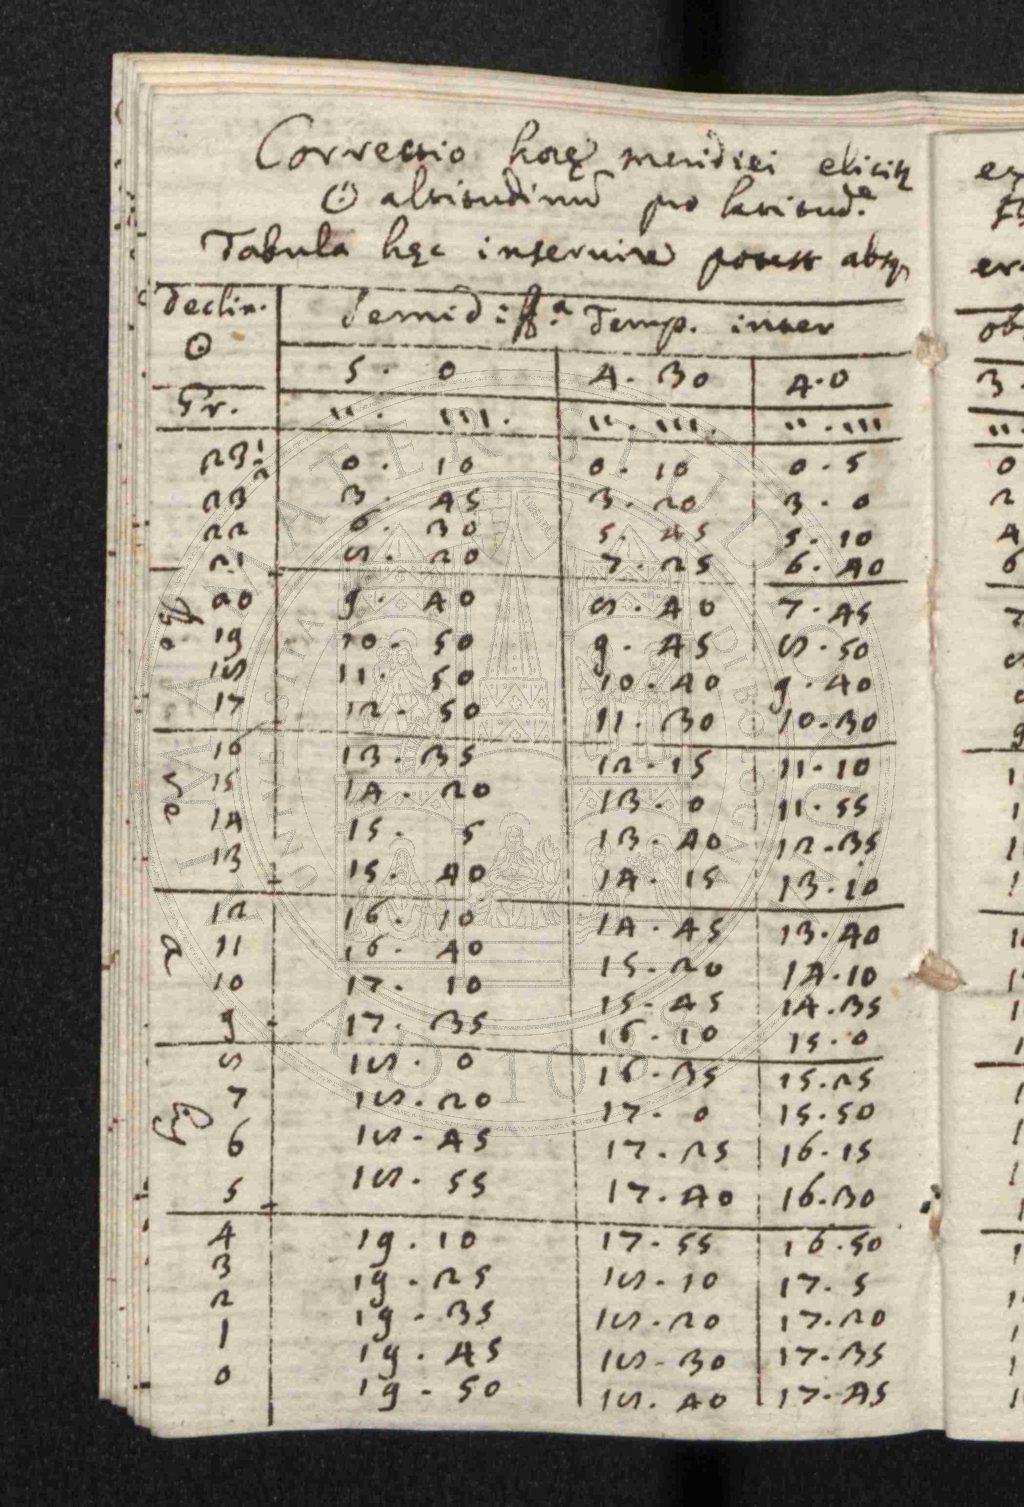 Correctio horę meridiei elicitę
☉ altitudinũ pro latitud.e
Tabula hęc inseruire potest absq
Declin. Semidiff.a Temp. inter
☉ 5 . 0 4 . 30 4 . 0 3 .
Gr. '' . ''' . '' . ''' . '' . ''' '' .
23 1/2 0 . 10 0 . 10 0 . 5 0
23 3 . 45 3 . 20 3 . 0 2
22 6 . 30 5 . 45 5 . 10 4
21 8 . 20 7 . 25 6 . 40 6
20 9 . 40 8 . 40 7 . 45 7
19 10 . 50 9 . 45 8 . 50 8
18 11 . 50 10 . 40 9 . 40
17 12 . 50 11 . 30 10 . 30 9
16 13 . 35 12 . 15 11 . 10
15 14 . 20 13 . 0 11 . 55
14 15 . 5 13 . 40 12 . 35
13 15 . 40 14 . 15 13 . 10
12 16 . 10 14 . 45 13 . 40
11 16 . 40 15 . 20 14 . 10
10 17 . 10 15 . 45 14 . 35
9 17 . 35 16 . 10 15 . 0
8 18 . 0 16 . 35 15 . 25
7 18 . 20 17 . 0 15 . 50
6 18 . 45 17 . 25 16 . 15
5 18 . 55 17 . 40 16 . 30
4 19 . 10 17 . 55 16 . 50
3 19 . 25 18 . 10 17 . 5
2 19 . 35 18 . 20 17 . 20
1 19 . 45 18 . 30 17 . 35
0 19 . 50 18 . 40 17 . 45